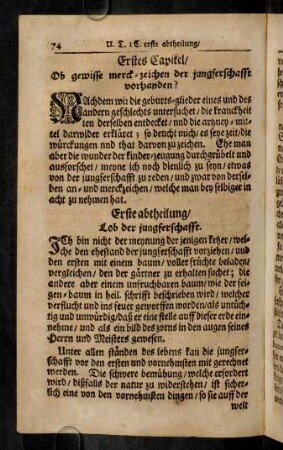 74 II. T. 1 C. erste abtheilung/
Erstes Capitel/
Ob gewisse merck-zeichen der jungferschafft
vorhanden?
NAchdem wir die geburts-glieder eines und des
andern geschlechts untersuchet / die kranckhei
ten derselben entdecket / und die artzney-mit-
tel darwider erkläret; so deucht mich / es seye zeit / die
würckungen und that darvon zu zeichen. Ehe man
aber die wunder der kinder-zeugung durchgrübelt und
ausforschet / meyne ich noch dienlich zu seyn / etwas
von der jungferschafft zu reden / und zwar von dersel-
ben an- und merckzeichen / welche man bey selbiger in
acht zu nehmen hat.
Erste abtheilung/
Lob der jungferschafft.
ICh bin nicht der meynung der jenigen ketzer / wel-
che den ehestand der jungferschafft vorziehen / und
den ersten mit einem baum / voller früchte beladen /
vergleichen / den der gärtner zu erhalten suchet; die
andere aber einem unfruchtbaren baum / wie der fei-
gen-baum in heil. schrifft beschrieben wird / welcher
verflucht und ins feuer geworffen worden / als untüch-
tig und unwürdig / daß er eine stelle auff dieser erde ein-
nehme / und als ein bild des zorns in den augen seines
Herrn und Meisters gewesen.
Unter allen ständen des lebens kan die jungfer-
schafft vor den ersten und vornehmsten mit gerechnet
werden. Die schwere bemühung / welche erfordert
wird / dißfalls der natur zu widerstehen / ist sicher-
lich eine von den vornehmsten dingen / so sie auff der
welt